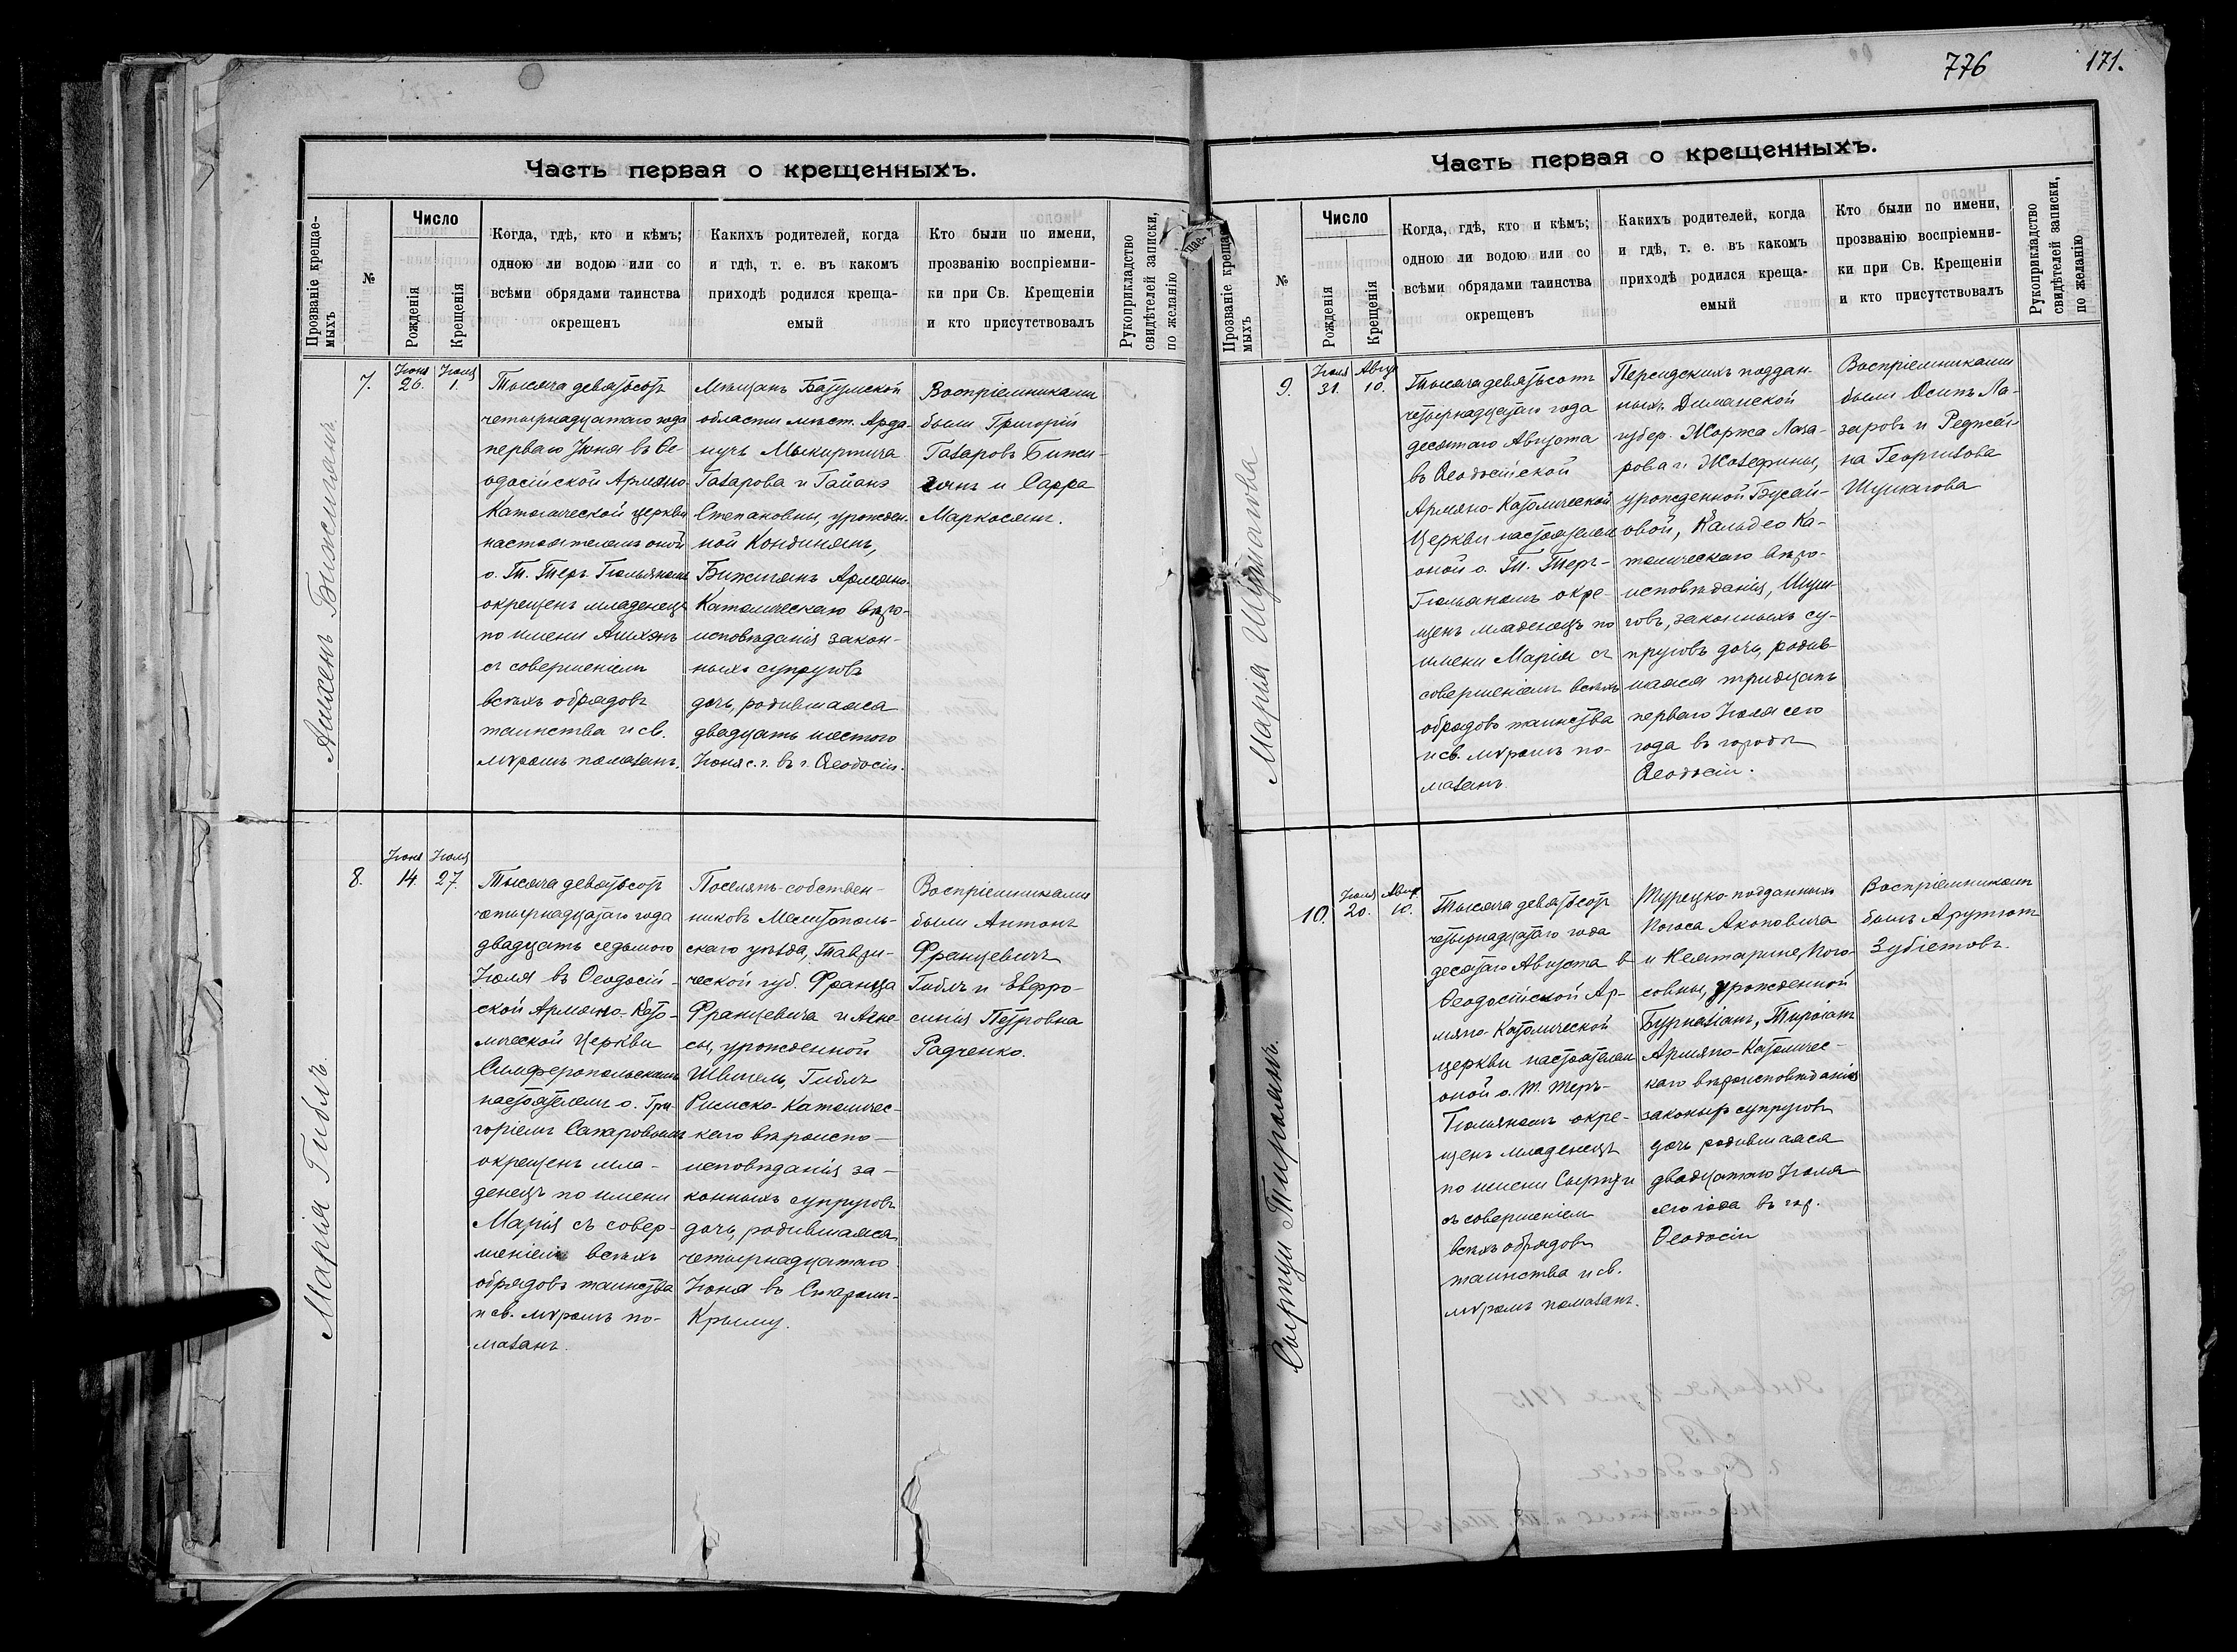 776
171.
Часть первая о крещенныхъ.
Прозваніе крещае-
мыхъ
№
Число
Рожденія
Крещенія
Когда, гдѣ, кто и кѣмъ;
одною ли водою или со
всѣми обрядами таинства
окрещенъ
Какихъ родителей, когда
и гдѣ, т. е. въ какомъ
приходѣ родился креща-
емый
Кто были по имени,
прозванію воспріемни-
ки при Св. Крещеніи
и кто присутствовалъ
Рукоприкладство
свидѣтелей записки,
по желанію
7.
Іюня
26.
Іюля
1.
Тысяча девятьсотъ
четырнадцатаго года
перваго Іюля въ Ѳе-
одосійской Армяно-
Католической церкви
настоятелемъ оной
о. Т. Теръ-Гюльяномъ
окрещенъ младенецъ
по имени Ашхэнъ
съ совершеніемъ
всѣхъ обрядовъ
таинства и св.
мѵромъ помазанъ.
Мѣщанъ Батумской
области мѣст. Арда-
нучъ Мыкиртича
Газарова и Гаянэ
Степановны, урожден-
ной Кондинянъ,
Армяно-
Католическаго вѣро-
исповѣданія закон-
ныхъ супруговъ
дочь, родившаяся
двадцать шестого
Іюня с. г. въ г. Ѳеодосіи.
Воспріемниками
были Григорій
Газаровъ
и Сарра
Маркосянъ.
8.
Іюня
14.
Іюля
27.
Марія Гибль.
Тысяча девятьсотъ
четырнадцатаго года
двадцать седьмого
Іюля въ Ѳеодосій-
ской Армяно-Като-
лической Церкви
Симферопольскимъ
настоятелемъ о. Гри-
горіемъ Сапаровымъ
окрещенъ мла-
денецъ по имени
Марія съ совер-
шеніемъ всѣхъ
обрядовъ таинства
и св. мѵромъ по-
мазанъ.
Поселянъ-собствен-
никовъ Мелитополь-
скаго уѣзда, Таври-
ческой губ. Франца
Францевича и Агне-
сы, урожденной
Гибль
Римско-Католичес-
каго вѣроиспо-
исповѣданія за-
конныхъ супруговъ
дочь, родившаяся
четырнадцатаго
Іюня въ Старом-
Крыму.
Воспріемниками
были Антонъ
Францевичъ
Гибль и Евфро-
синія Петровна
Радченко.
Часть первая о крещенныхъ.
Прозваніе крещае-
мыхъ
№
Число
Рожденія
Крещенія
Когда, гдѣ, кто и кѣмъ;
одною ли водою или со
всѣми обрядами таинства
окрещенъ
Какихъ родителей, когда
и гдѣ, т. е. въ какомъ
приходѣ родился креща-
емый
Кто были по имени,
прозванію воспріемни-
ки при Св. Крещеніи
и кто присутствовалъ
Рукоприкладство
свидѣтелей записки,
по желанію
9.
Іюля
31.
Авгус
10.
Марія
Тысяча девятьсотъ
четырнадцатаго года
десятаго Августа
въ Ѳеодосійской
Армяно-Католической
Церкви настоятелем
оной о. Т. Теръ-
Гюльяномъ окре-
щенъ младенецъ по
имени Марія съ
совершеніемъ всѣхъ
обрядовъ таинства
и св. мѵромъ по-
мазанъ.
Персидскихъ поддан-
ныхъ Диманской
губер. Жоржа Лаза-
рова и Жозефины,
урожденной Бусай-
овой, Кальдео Ка-
толическаго вѣро-
исповѣданія,
законныхъ су-
пруговъ дочь, родив-
шаяся тридцать
перваго Іюля сего
года въ городѣ
Ѳеодосіи.
Воспріемниками
были Осипъ Ла-
заровъ и
Георгизова
10.
Іюля
20.
Авгус
10.
Тысяча девятьсотъ
четырнадцатаго года
десятаго Августа в
Ѳеодосійской Ар-
мяно-Католической
церкви настоятелем
оной о. Т. Теръ-
Гюльяномъ окре-
щенъ младенецъ
по имени Сырпуи
съ совершеніем
всѣхъ обрядовъ
таинства и св.
мѵромъ помазанъ.
Сырпуи Тироянъ.
Турецко-подданныхъ
Погоса Акоповича
и Погo-
совны, урожденной
Армяно-Католичес-
каго вѣроисповѣданія
супруговъ
дочь родившаяся
двадцатаго Іюля
сего года въ гор.
Ѳеодосіи
Воспріемником
былъ Арутюн